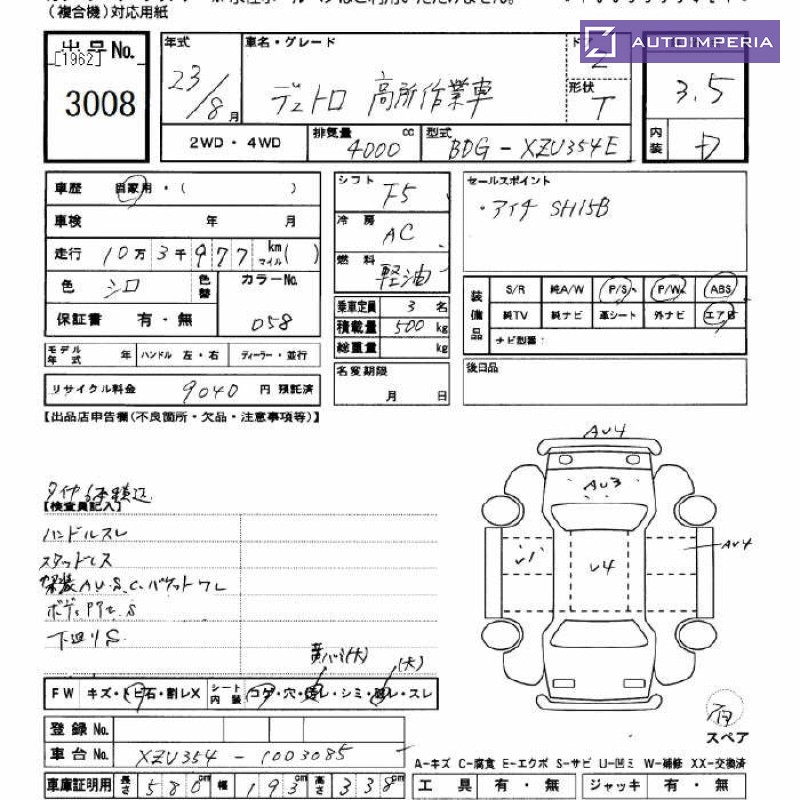 (複合機)対応用紙
AUTOIMPERIA
出品No.
[1962]
3008
年式
23/8月
車名・グレード
デュトロ 高所作業車
ドア
2
形状
T
3.5
内装
D
2WD・4WD
排気量 4000 cc
型式 BDG-XZU354E
車歴 自家用・( )
車検 年 月
走行 10万3千977 km マイル( )
色 シロ
色替
カラーNo.
058
保証書 有・無
シフト F5
冷房 AC
燃料 軽油
乗車定員 3名
積載量 500 kg
総重量 kg
セールスポイント
・アイチ SH15B
装備品
S/R 純A/W P/S P/W ABS
純TV 純ナビ 革シート 外ナビ エアB
ナビ型番:
モデル年式 年 ハンドル 左・右 ディーラー・並行
名変期限
月 日
後日品
リサイクル料金 9040 円 預託済
【出品店申告欄(不良箇所・欠品・注意事項等)】
タイヤ6本積込
【検査員記入】
ハンドルスレ
スタッドレス
架装AU.S.C.バケットワレ
下廻りS
AU4
AU3
U4
AU4
(大)
FW キズ・トビ石・割レX
シート内装 コゲ・穴・破レ・シミ・スレ
登録No.
車台No. XZU354-1003085
雨
スペア
A-キズ C-腐食 E-エクボ S-サビ U-凹ミ W-補修 XX-交換済
車庫証明用 長さ 580cm 幅 193cm 高さ 338cm
工具 有・無 ジャッキ 有・無